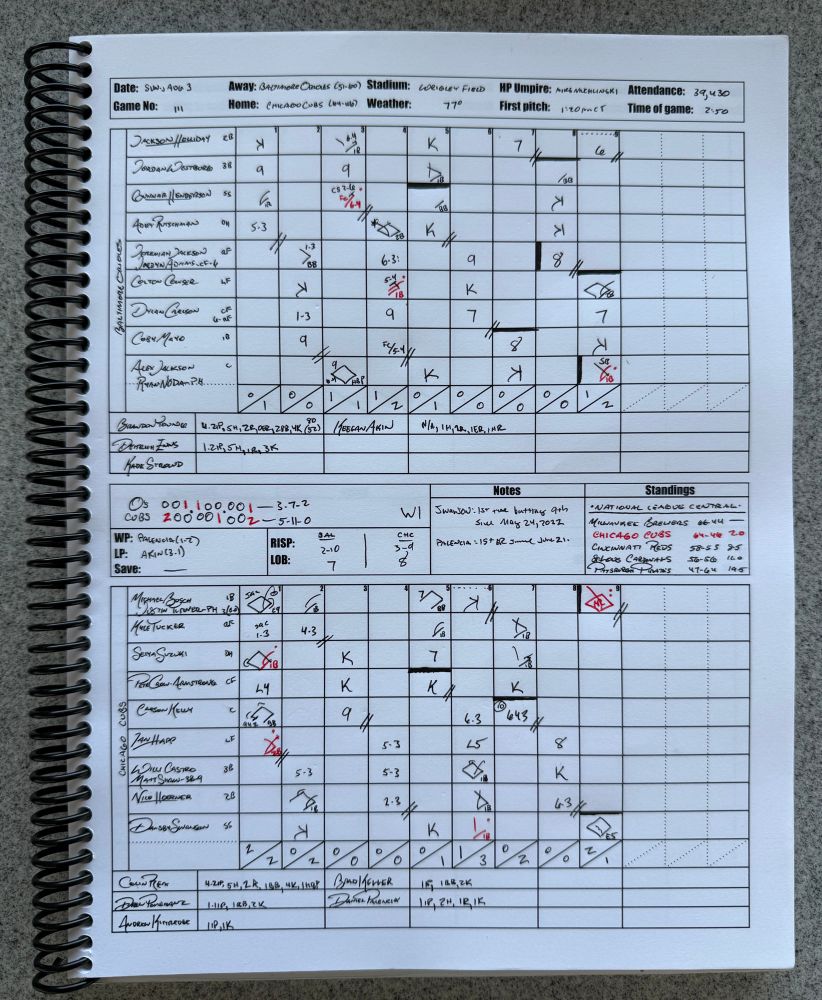 Date: SUN, AUG 3 Away: BALTIMORE ORIOLES (51-60) Stadium: WRIGLEY FIELD HP Umpire: Attendance: 39,430
Game No: 111 Home: CHICAGO CUBS (64-46) Weather: 77° First pitch: 1:20PM CT Time of game: 2:50
1 2 3 4 5 6 7 8 9
BALTIMORE ORIOLES
JACKSON HOLLIDAY 2B K 6-4 1B K 7 6
JORDAN WESTBURG 3B 9 9 1B BB
GUNNAR HENDERSON SS 1B CS 2-6 FC/6-4 BB K
ADLEY RUTSCHMAN DH 5-3 2B K K
JEREMIAH JACKSON RF 1-3 BB 6-3 9 8
JORDYN ADAMS-CF-6
COLTON COWSER LF K 5-4 1B K 2B
DYLAN CARLSON CF 1-3 9 7 7
COBY MAYO 1B 9 FC/5-4 8 K
ALEX JACKSON C 9 HBP K K SB 1B
RYAN NODA-PH
0/1 0/0 1/1 1/2 0/1 0/0 0/0 0/0 1/2
BRANDON YOUNG 4.2IP, 5H, 2R, 0ER, 2BB, 4K 90 (52) KEEGAN AKIN N/A, 1H, 2R, 1ER, 1HR
DIETRICH ENNS 1.2IP, 5H, 1R, 3K
KADE STROWD
Os 001 100 001 — 3-7-2
CUBS 200 001 002 — 5-11-0
W1
WP: PALENCIA (1-2)
LP: AKIN (3-1)
Save: —
BAL CHC
RISP: 2-10 3-9
LOB: 7 8
Notes
SWANSON: 1ST time batting 9th
since May 24, 2022
PALENCIA: 1ST ER since June 21.
Standings
·NATIONAL LEAGUE CENTRAL·
MILWAUKEE BREWERS 66-44 —
CHICAGO CUBS 64-46 2.0
CINCINNATI REDS 58-53 8.5
ST. LOUIS CARDINALS 56-56
PITTSBURGH PIRATES 47-64 19.5
1 2 3 4 5 6 7 8 9
CHICAGO CUBS
MICHAEL BUSCH 1B 1B BB K HR
JUSTIN TURNER-PH
KYLE TUCKER RF SAC 1-3 4-3 1B 1B
SEIYA SUZUKI DH 1B K 7 1B
PETE CROW-ARMSTRONG CF L4 K K K
CARSON KELLY C BB 9 6-3 643
IAN HAPP LF 5-3 L5 8
WILLI CASTRO 3B 5-3 5-3 1B K
MATT SHAW-3B-9
NICO HOERNER 2B 1B 2-3 1B 6-3
DANSBY SWANSON SS K K 1B E5
2/2 0/2 0/0 0/0 0/1 1/3 0/2 0/0 2/1
COLIN REA 4.2IP, 5H, 2R, 1BB, 4K, 1HBP BRAD KELLER 1IP, 1BB, 2K
DREW POMERANZ 1.1IP, 1BB, 2K DANIEL PALENCIA 1IP, 2H, 1R, 1K
ANDREW KITTREDGE 1IP, 1K